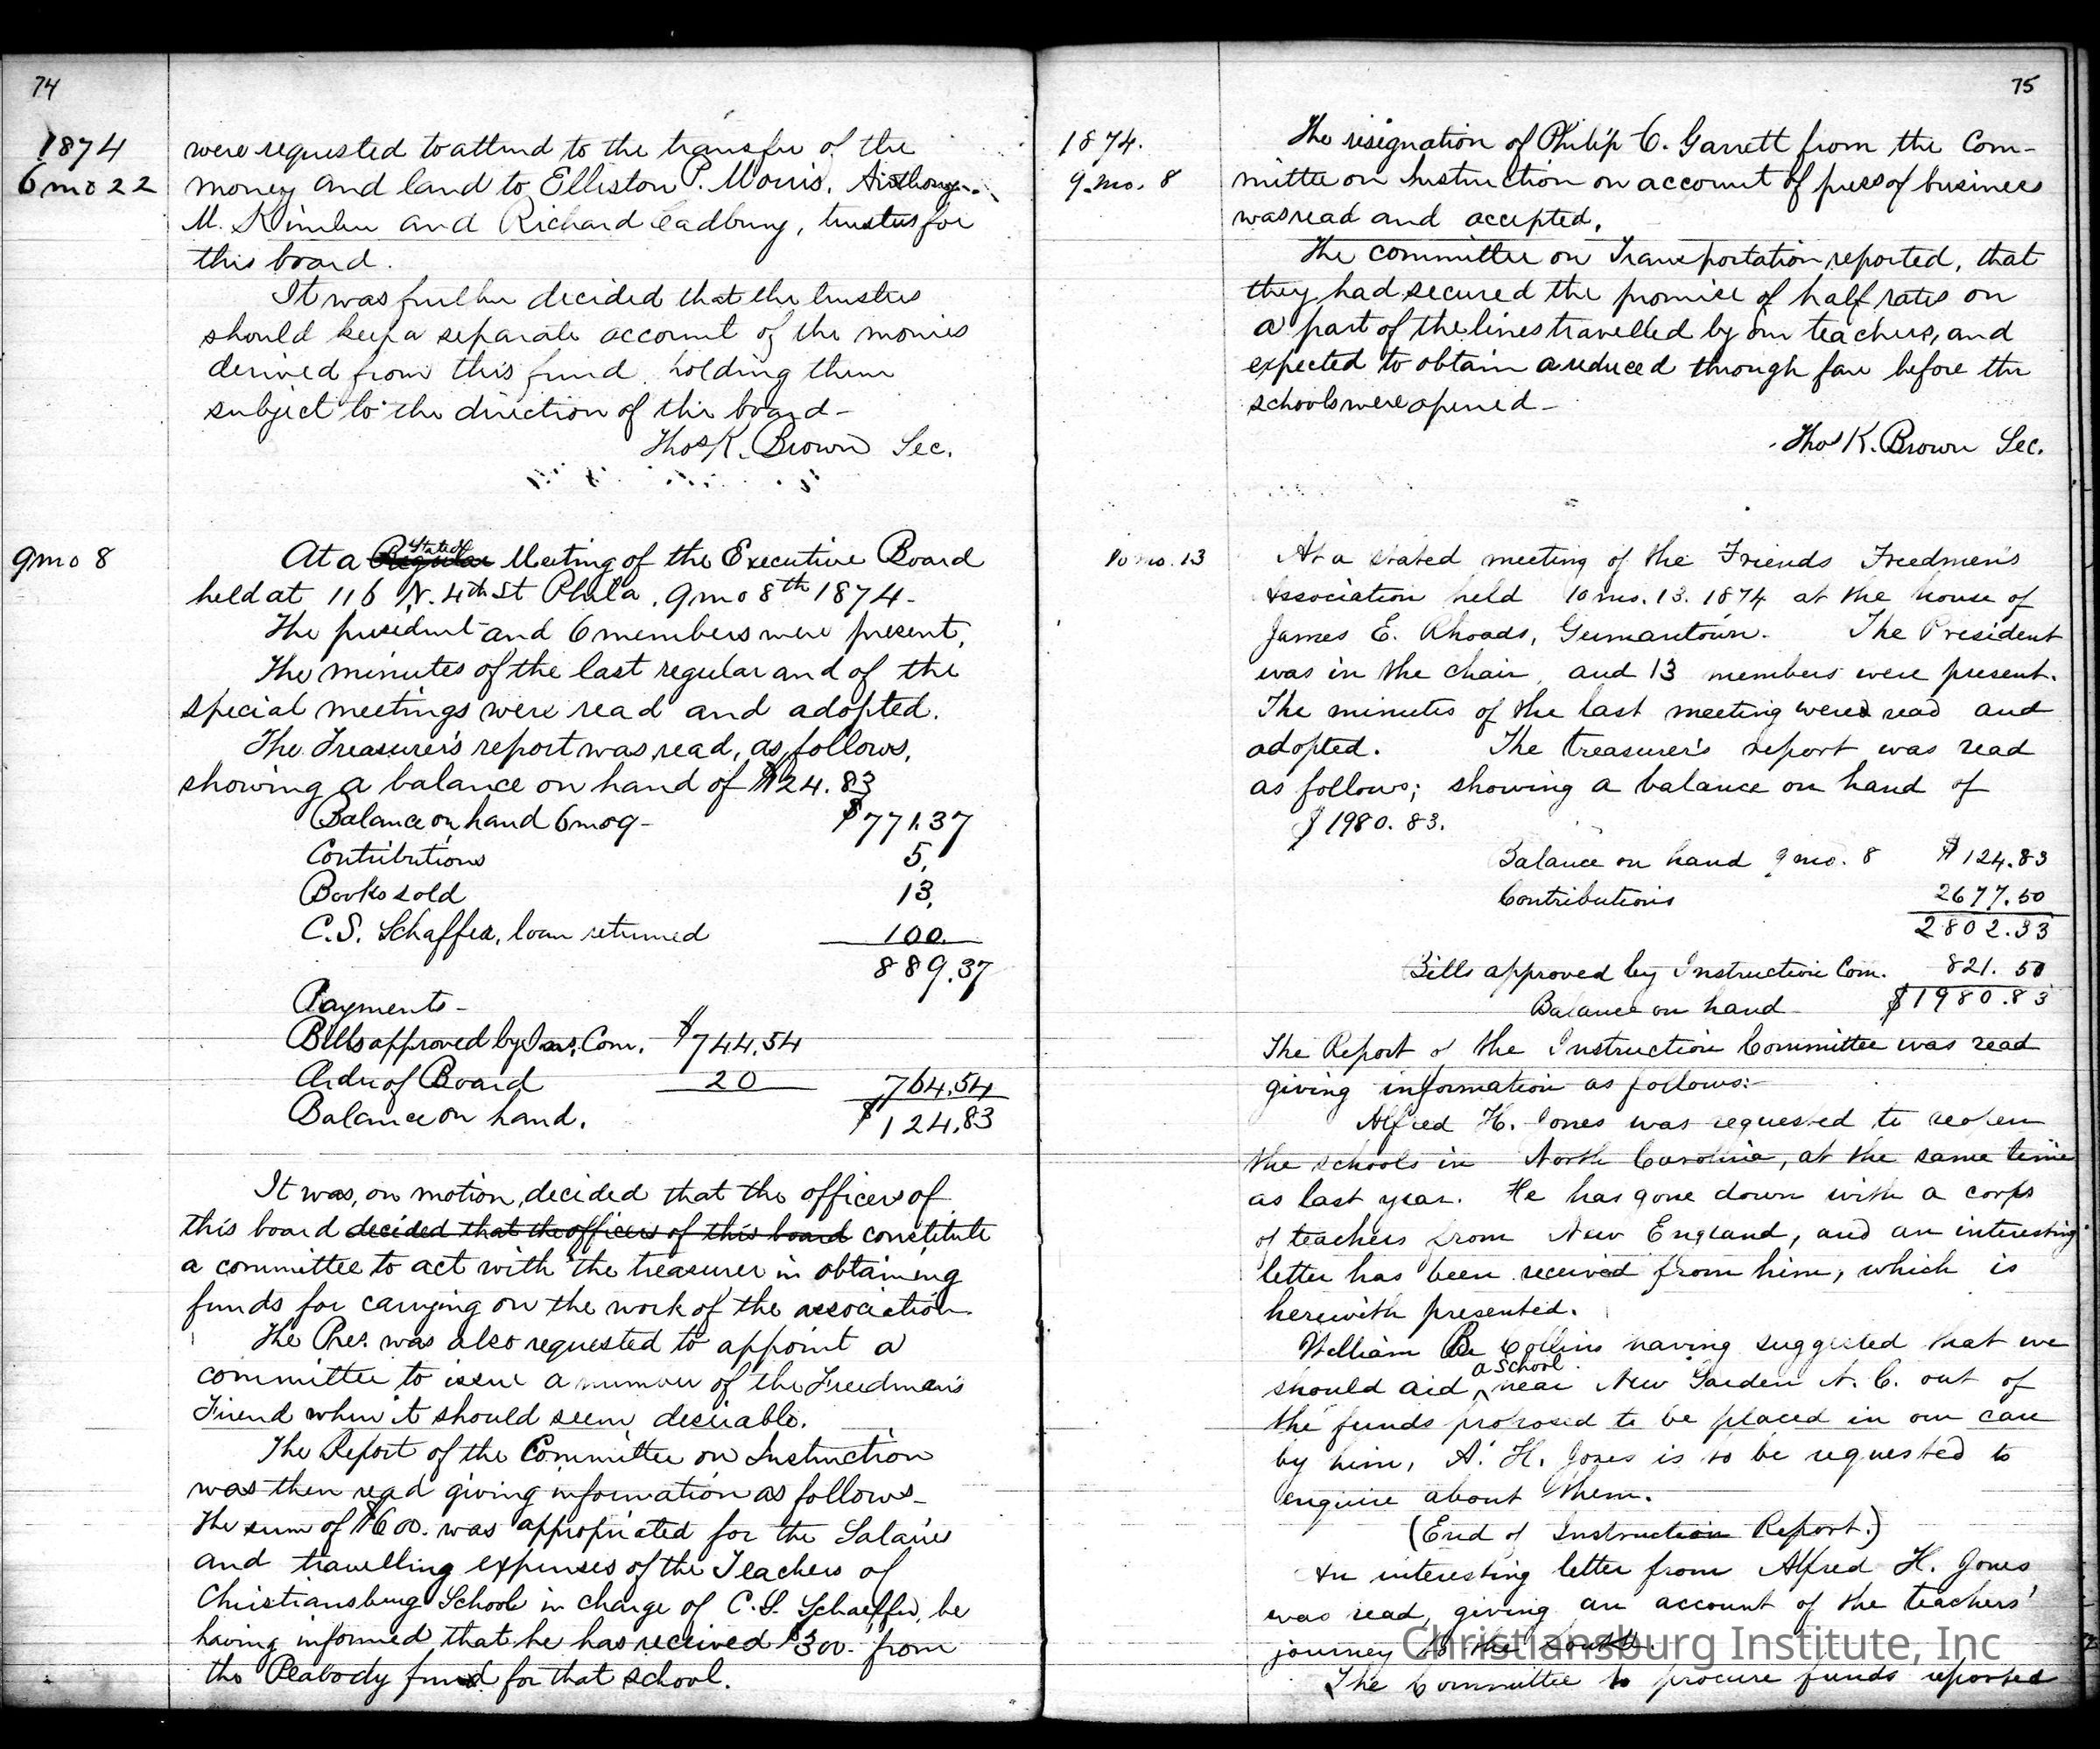 74
1874
6 mo 22
were requested to attend to the transfer of the
money and land to Elliston P. Morris, Anthony
M. Kimber and Richard Cadbury, trustees for
this board.
It was further decided that the trustees
should keep a separate account of the monies
derived from this fund holding them
subject to the direction of this board -
Thos K. Brown Sec.
9 mo 8
At a Regular Stated Meeting of the Executive Board
held at 116 N. 4th St Phila. 9 mo 8th 1874 -
The president and 6 members were present,
The minutes of the last regular and of the
special meetings were read and adopted.
The Treasurer's report was read, as follows,
showing a balance on hand of $124.83
Balance on hand 6 mo 9 - $771.37
Contributions 5.
Books sold 13.
C.S. Schaffer, loan returned 100.
889.37
Payments -
Bills approved by Ins. Com. $744.54
Order of Board 20 764.54
Balance on hand. $124.83
It was, on motion, decided that the officers of
this board decided that the officers of this board constitute
a committee to act with the treasurer in obtaining
funds for carrying on the work of the association
The Pres. was also requested to appoint a
committee to issue a number of the Freedman's
Friend when it should seem desirable.
The Report of the Committee on Instruction
was then read giving information as follows -
The sum of $600. was appropriated for the Salaries
and travelling expenses of the Teachers of
Christiansburg School in charge of C.S. Schaeffer, he
having informed that he has received $300. from
the Peabody fund for that school.
75
1874.
9. mo. 8
The resignation of Philip C. Garrett from the Com-
mittee on Instruction on account of press of business
was read and accepted.
The committee on Transportation reported, that
they had secured the promise of half rates on
a part of the lines travelled by our teachers, and
expected to obtain a reduced through fare before the
schools were opened -
Thos K. Brown Sec.
10 mo. 13
At a stated meeting of the Friends Freedmen's
Association held 10 mo. 13. 1874 at the house of
James E. Rhoads, Germantown. The President
was in the chair, and 13 members were present.
The minutes of the last meeting were read and
adopted. The treasurer's report was read
as follows; showing a balance on hand of
$1980.83.
Balance on hand 9 mo. 8 $124.83
Contributions 2677.50
2802.33
Bills approved by Instruction Com. 821.50
Balance on hand $1980.83
The Report of the Instruction Committee was read
giving information as follows:-
Alfred H. Jones was requested to reopen
the schools in North Carolina, at the same time
as last year. He has gone down with a corps
of teachers from New England, and an interesting
letter has been received from him, which is
herewith presented.
William B. Collins having suggested that we
should aid a school near New Garden N. C. out of
the funds proposed to be placed in our care
by him, A. H. Jones is to be requested to
enquire about them.
(End of Instruction Report.)
An interesting letter from Alfred H. Jones
was read, giving an account of the teachers'
journey to the South.
The Committee to procure funds reported
Christiansburg Institute, Inc